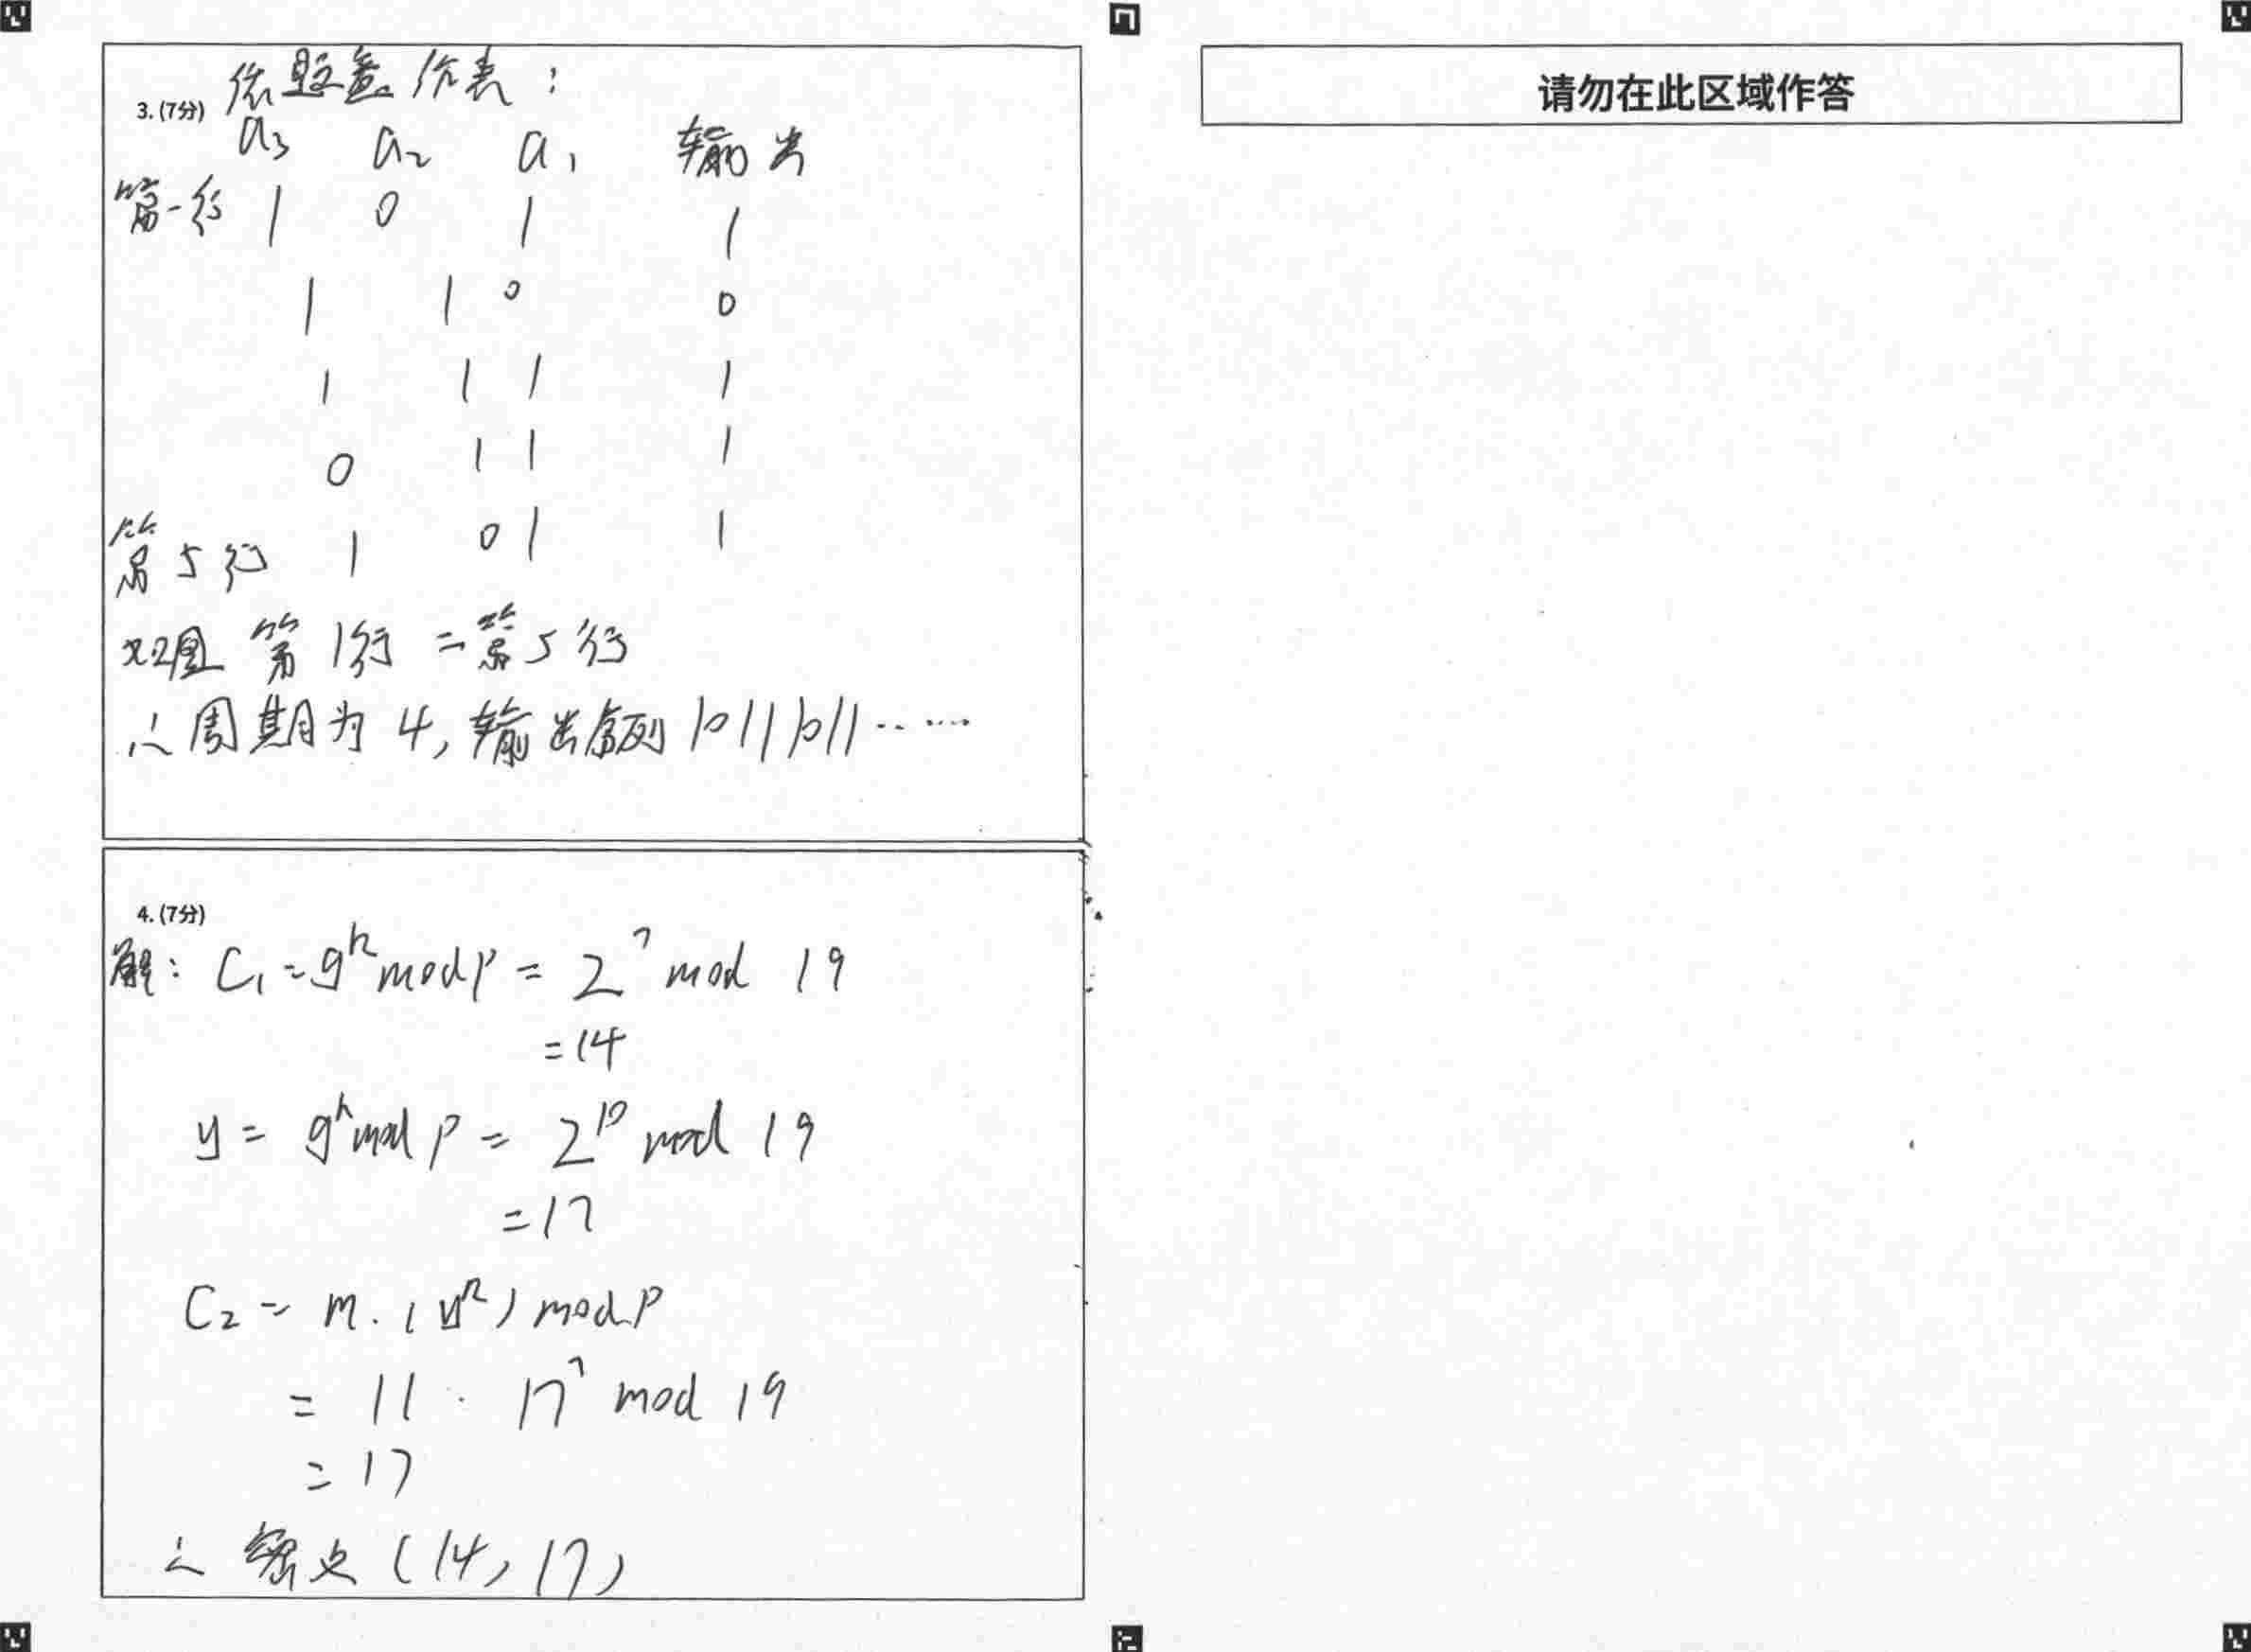 请勿在此区域作答
3. (7分) 依题画价表:
a₃ a₂ a₁ 输出
第一行 1 0 1 1
1 1 0 0
1 1 1 1
0 1 1 1
第5行 1 0 1 1
第1行 = 第5行
∴ 周期为4, 输出序列 10111011……
4. (7分)
解: C₁ = g^k mod p = 2^7 mod 19
= 14
y = g^x mod p = 2^10 mod 19
= 17
C₂ = m·(y^k) mod p
= 11 · 17^7 mod 19
= 17
∴ 密文 (14, 17)